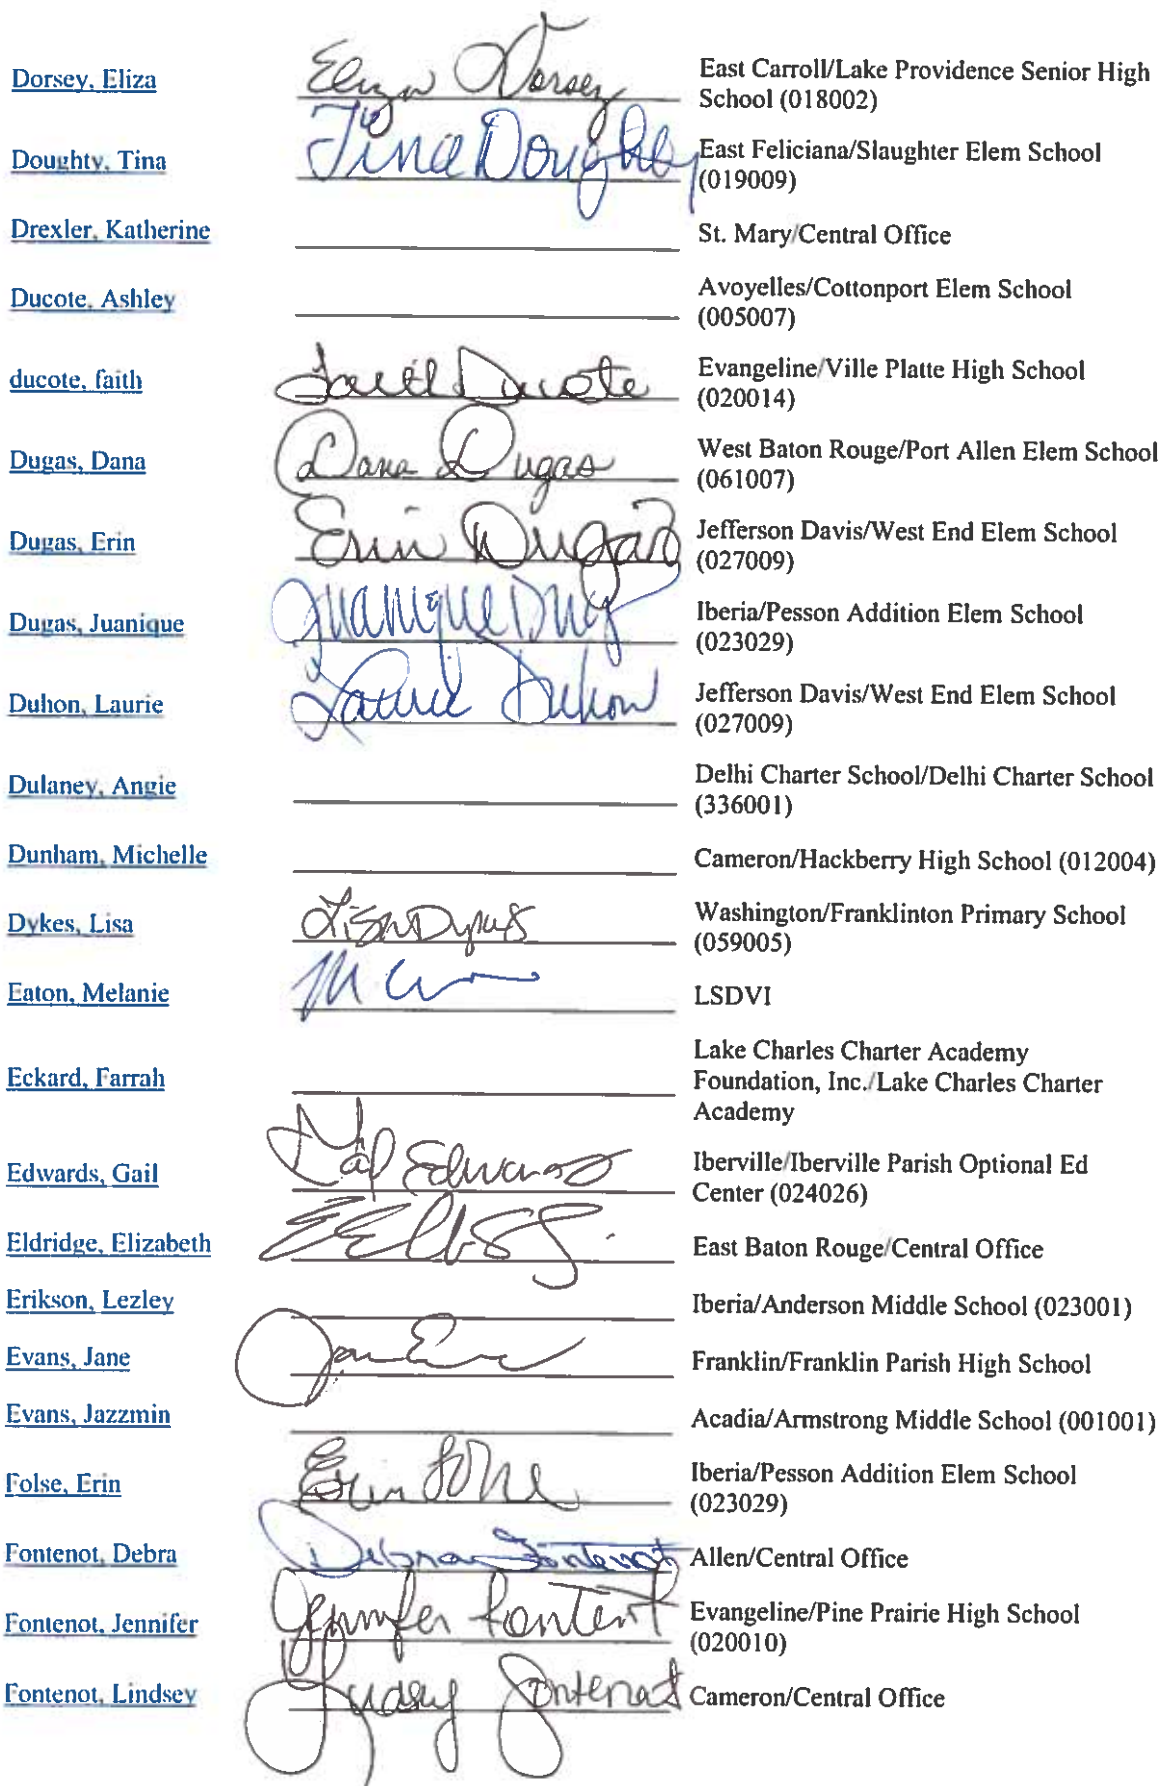 Dorsey, Eliza Eliza Dorsey East Carroll/Lake Providence Senior High
School (018002)
Doughty, Tina Tina Doughty East Feliciana/Slaughter Elem School
(019009)
Drexler, Katherine St. Mary/Central Office
Ducote, Ashley Avoyelles/Cottonport Elem School
(005007)
ducote, faith Faith Ducote Evangeline/Ville Platte High School
(020014)
Dugas, Dana Dana Dugas West Baton Rouge/Port Allen Elem School
(061007)
Dugas, Erin Erin Dugas Jefferson Davis/West End Elem School
(027009)
Dugas, Juanique Juanique Dug Iberia/Pesson Addition Elem School
(023029)
Duhon, Laurie Laurie Duhon Jefferson Davis/West End Elem School
(027009)
Dulaney, Angie Delhi Charter School/Delhi Charter School
(336001)
Dunham, Michelle Cameron/Hackberry High School (012004)
Dykes, Lisa Lisa Dykes Washington/Franklinton Primary School
(059005)
Eaton, Melanie LSDVI
Eckard, Farrah Lake Charles Charter Academy
Foundation, Inc./Lake Charles Charter
Academy
Edwards, Gail Gail Edwards Iberville/Iberville Parish Optional Ed
Center (024026)
Eldridge, Elizabeth East Baton Rouge/Central Office
Erikson, Lezley Iberia/Anderson Middle School (023001)
Evans, Jane Franklin/Franklin Parish High School
Evans, Jazzmin Acadia/Armstrong Middle School (001001)
Folse, Erin Erin Folse Iberia/Pesson Addition Elem School
(023029)
Fontenot, Debra Debra Fontenot Allen/Central Office
Fontenot, Jennifer Jennifer Fontenot Evangeline/Pine Prairie High School
(020010)
Fontenot, Lindsey Lindsey Fontenot Cameron/Central Office